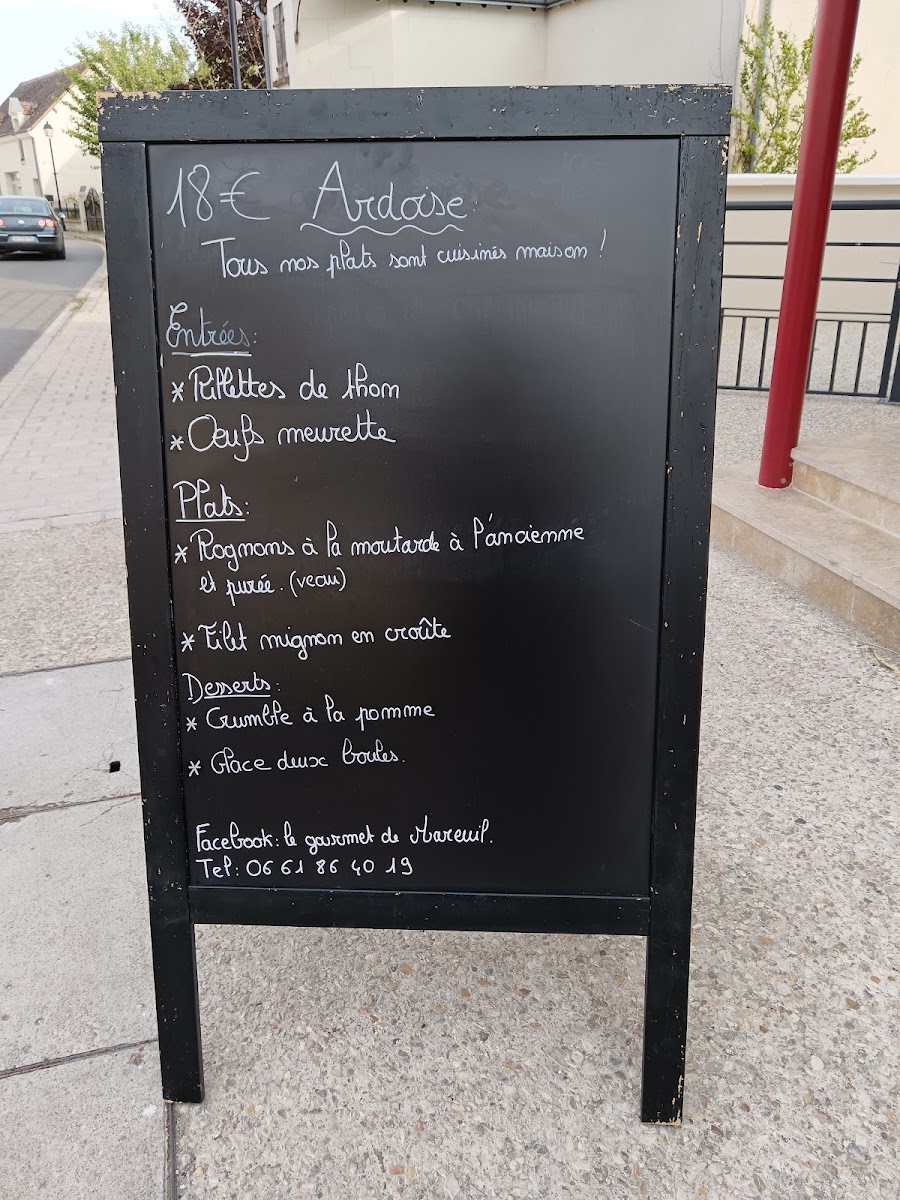 18€ Ardoise
Tous nos plats sont cuisinés maison !
Entrées:
* Rillettes de thon
* Oeufs meurette
Plats:
* Rognons à la moutarde à l'ancienne
et purée. (veau)
* Filet mignon en croûte
Desserts:
* Crumble à la pomme
* Glace deux boules.
Facebook: le gourmet de Mareuil.
Tel: 06 61 86 40 19